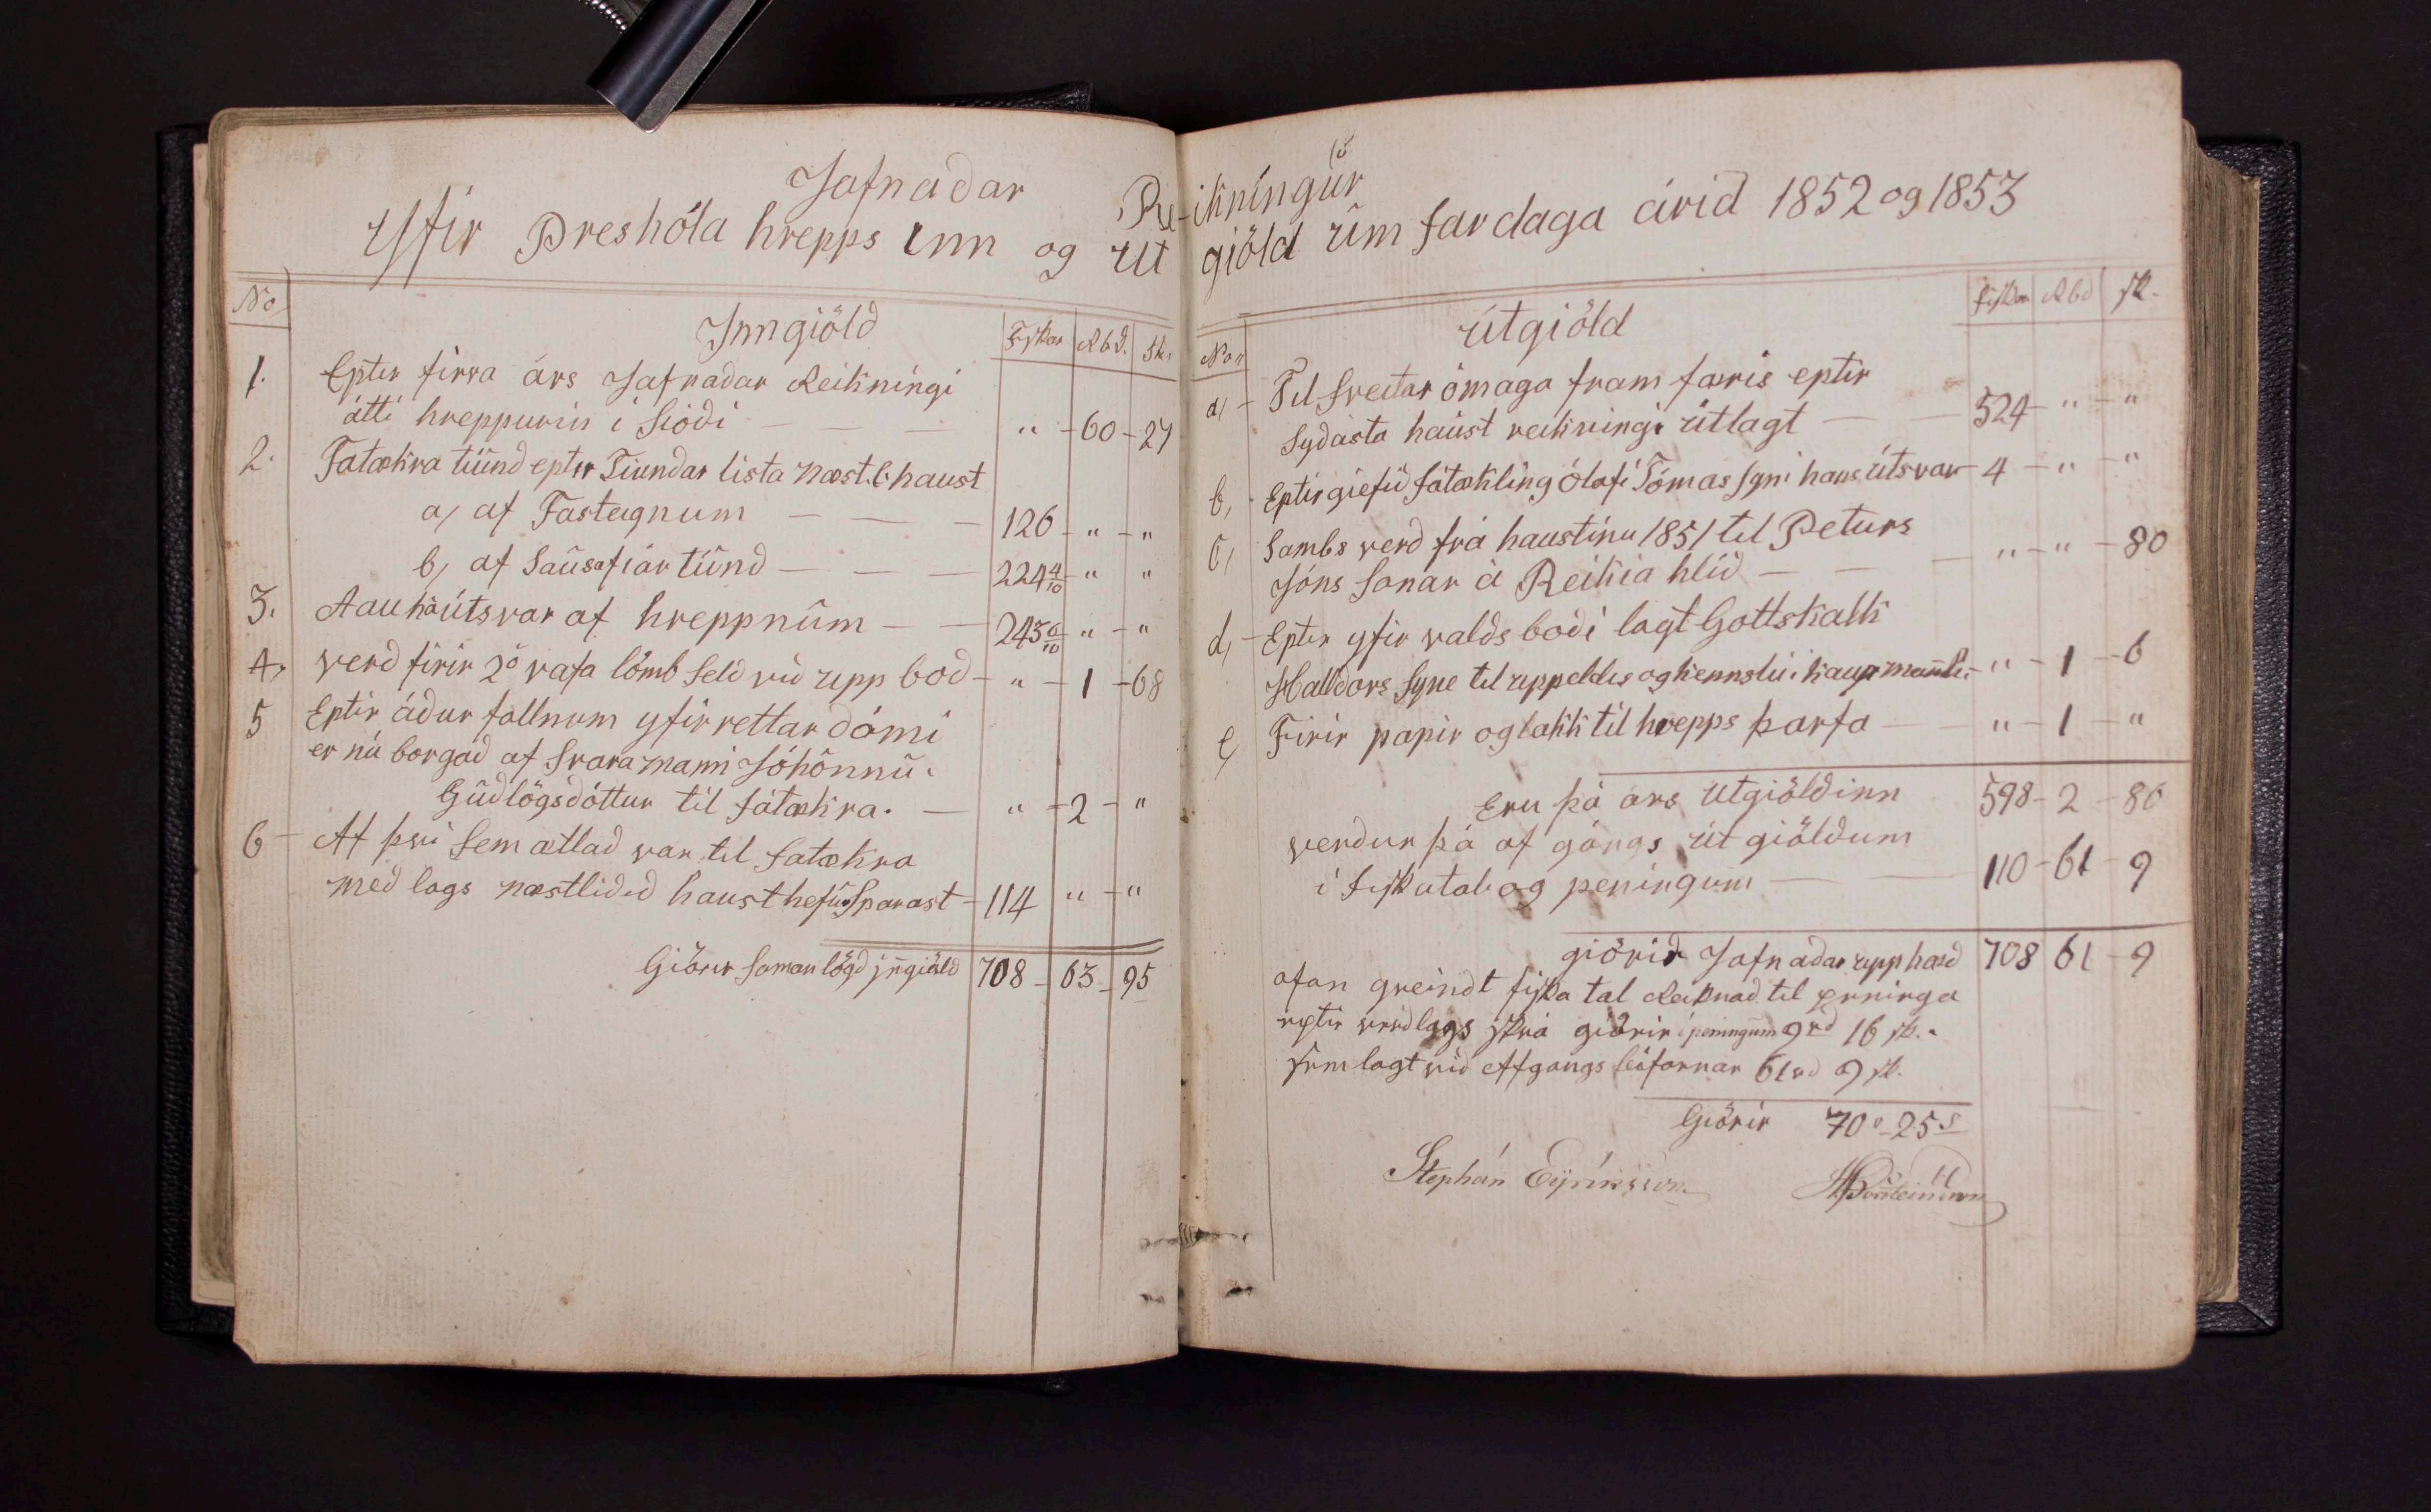 Jafnaðar Reikníngúr
Yfir Preshóla hrepps Inn og Ut giöld úm fardaga árið 1852 og 1853
No
Inngiöld
Fiskar Rbd. Sk.
1. Epter firra árs Jafnaðar Reikníngi
átti hreppurin í Sióði — " - 60 - 27
2. Fatækra tíúnd epter Tíundar lista næst. l. haust
a, af Fasteignum — 126 - " - "
b, af Laúsafiár tíúnd — 224 4/10 - " "
3. Auka útsvar af hreppnúm — 243 6/10 - " - "
4. verð firir 2ö vafa lömb Seld við upp boð - " - 1 - 68
5 Eptir áður follnum yfirrettar dómi
er nú borgað af Svaramanni Jóhönnú
Gúðlögsdóttur til fátækra. — " - 2 - "
6 - Af því Sem ætlað var til fatækra
með lags næstliðið haust hefúr Sparast - 114 " - "
Giörir Saman lögð jnngiöld 708 - 63 - 95
No
Útgiöld
fiskar Rbd sk.
a, - Til Sveitar ómaga fram færis eptir
Syðasta haúst reikningi útlagt — 524 - " - "
b, - Eptirgiefið fátækling Ólafi Tómas Syni hans útsvar - 4 - " - "
c, Lambs verð frá haustinu 1851 til Peturs
Jóns Sonar á Reikia hlíð — " - " - 80
d, - Epter yfir valds boði lagt Gottskalk
Halldors Syne til uppeldis og kennslu í kaupmannh. - " - 1 - 6
e, Firir papir og lakk til hrepps þarfa — " - 1 - "
Eru þá árs Utgiöldinn 598 - 2 - 86
verður þá af gángs út giöldum
í fiskatali og peningum — 110 - 61 - 9
giörir Jafnaðar upp hæð 708 61 - 9
ofan greindt fiska tal Reiknað til peninga
eptir verdlags skrá giörir í peningum 9rd 16 sk.
sem lagt við Afgangs leifarnar 61rd 9 sk.
Giörir 70 - 25 s
Stephán